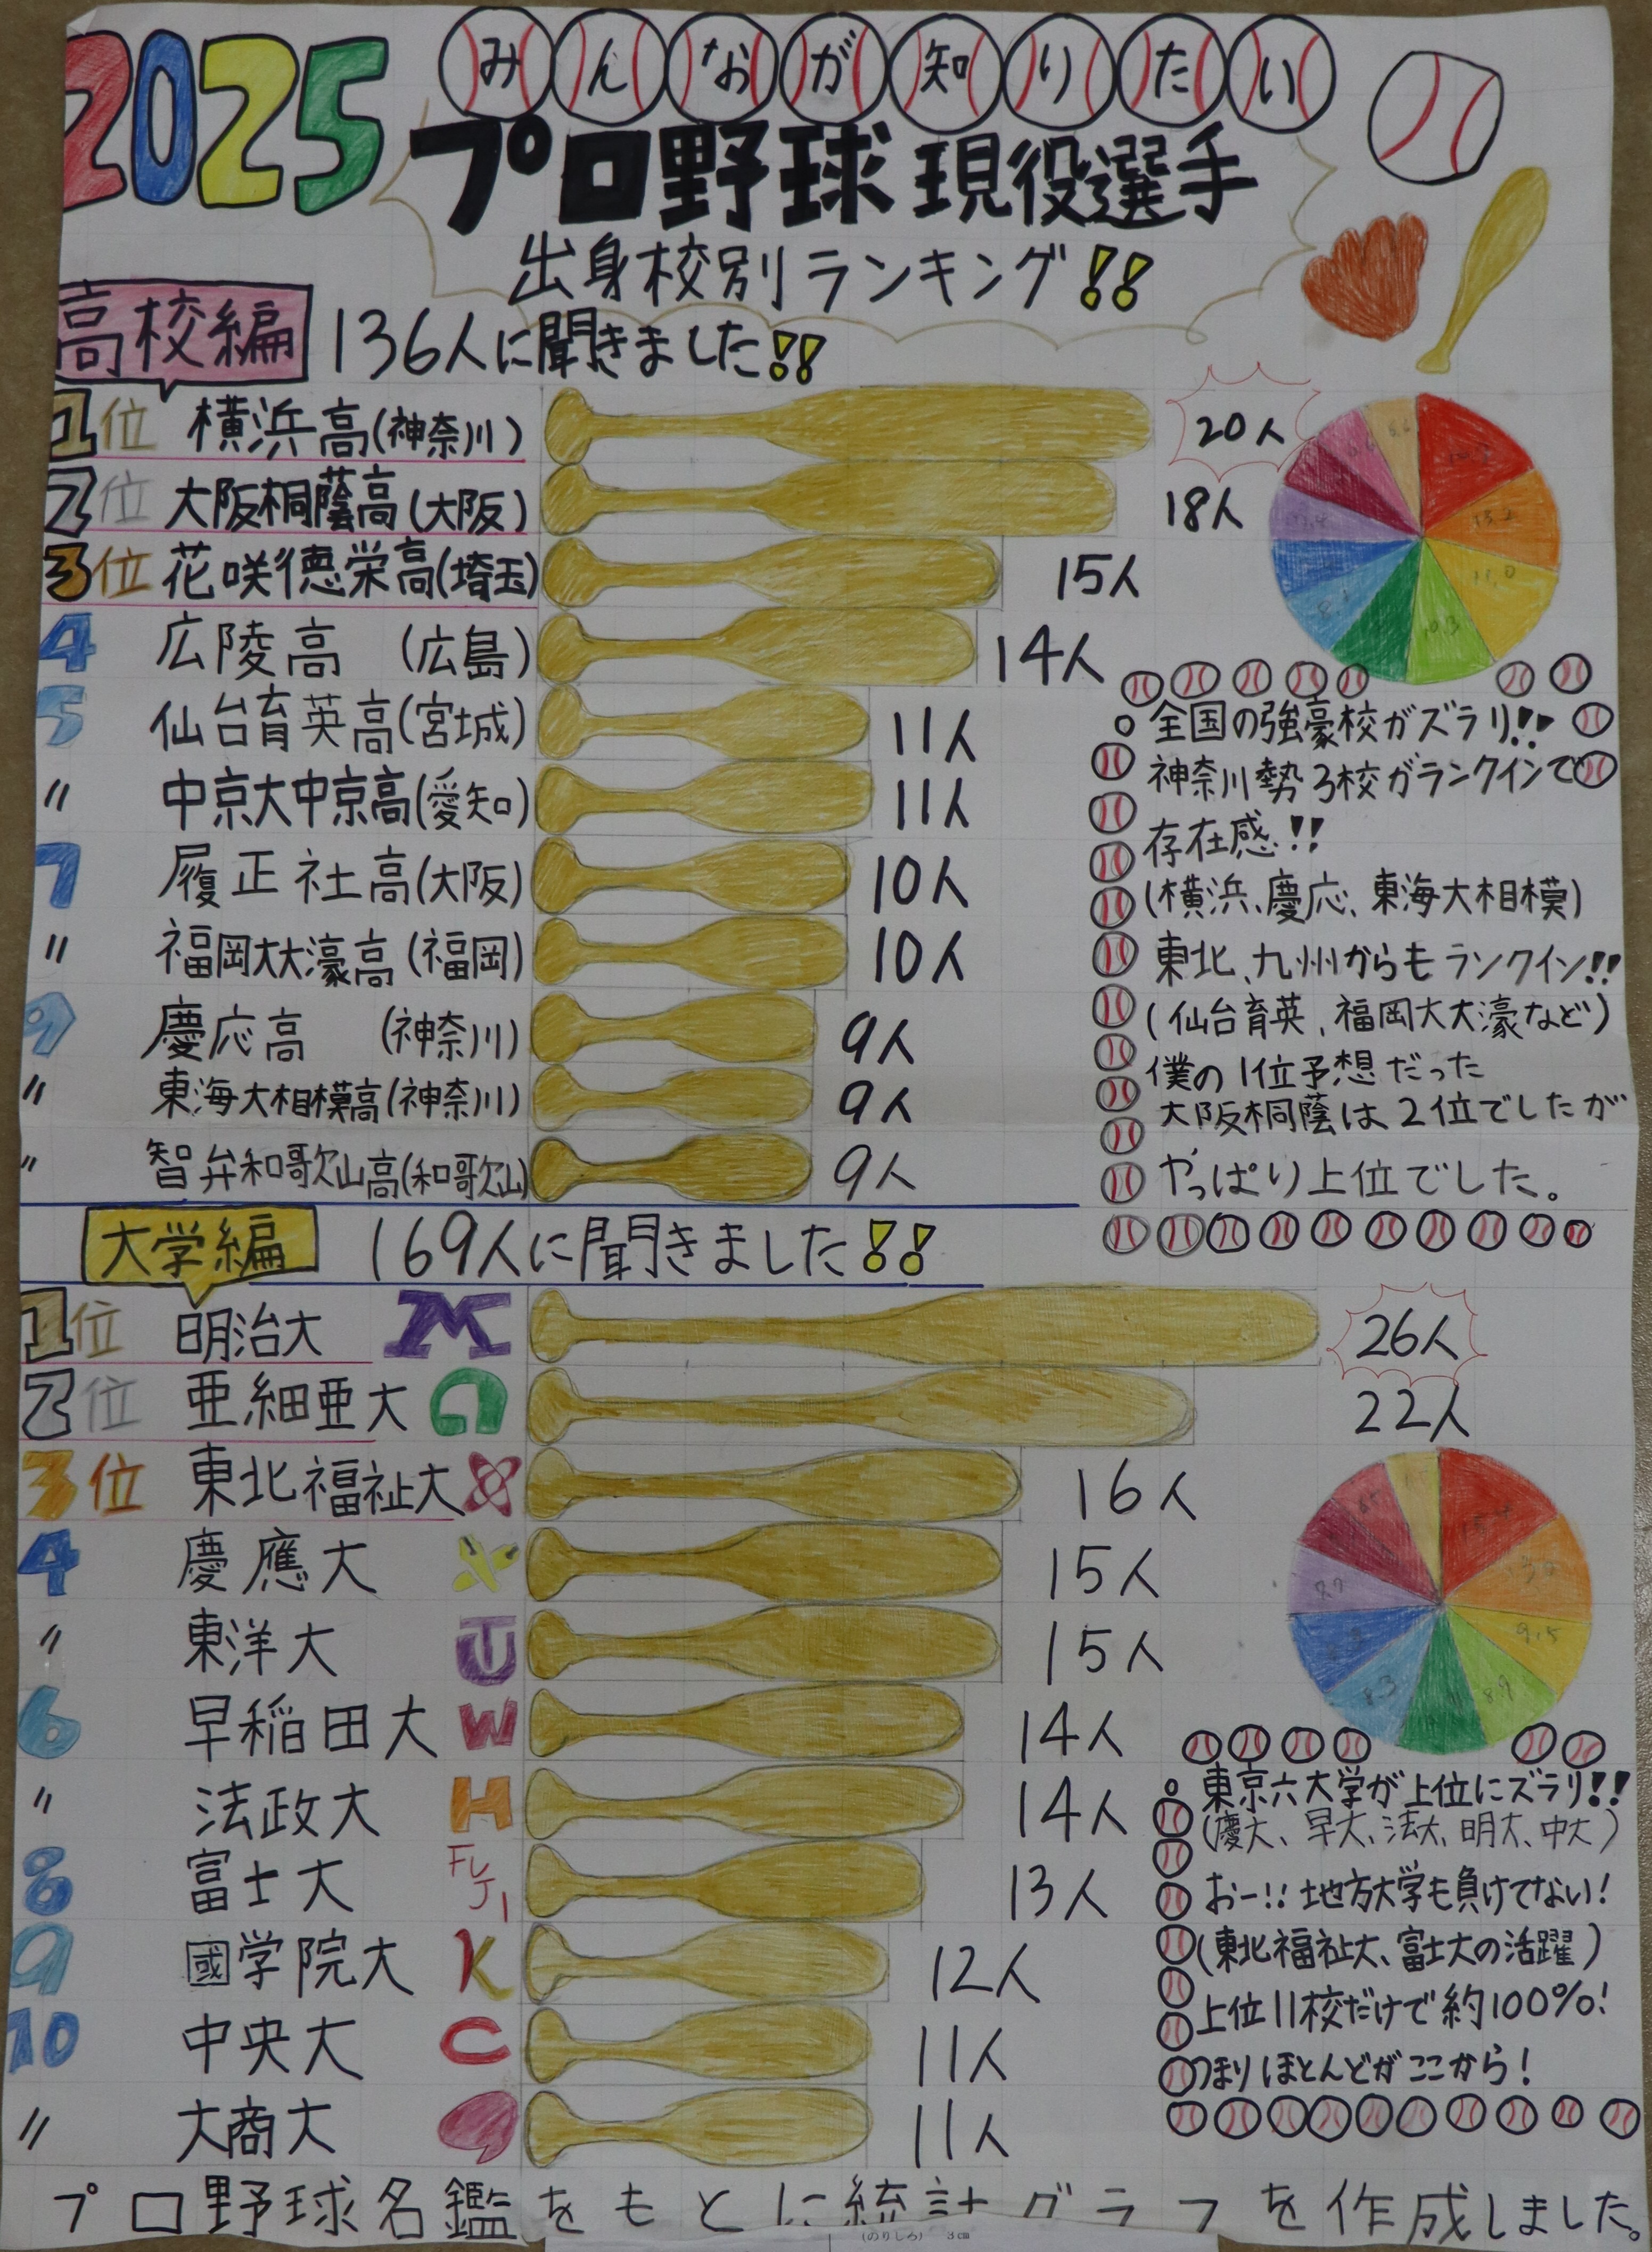 2025
みんなが知りたい
プロ野球現役選手
出身校別ランキング!!
高校編 136人に聞きました!!
1位 横浜高(神奈川) 20人
2位 大阪桐蔭高(大阪) 18人
3位 花咲徳栄高(埼玉) 15人
4 広陵高 (広島) 14人
5 仙台育英高(宮城) 11人
〃 中京大中京高(愛知) 11人
7 履正社高(大阪) 10人
〃 福岡大大濠高(福岡) 10人
9 慶応高 (神奈川) 9人
〃 東海大相模高(神奈川) 9人
〃 智弁和歌山高(和歌山) 9人
13.2
11.0
10.3
8.1
○全国の強豪校がズラリ!!
神奈川勢3校がランクインで
存在感!!
(横浜、慶応、東海大相模)
東北、九州からもランクイン!!
(仙台育英、福岡大大濠など)
僕の1位予想だった
大阪桐蔭は2位でしたが
やっぱり上位でした。
大学編 169人に聞きました!!
1位 明治大 M 26人
2位 亜細亜大 22人
3位 東北福祉大 16人
4 慶應大 15人
〃 東洋大 15人
6 早稲田大 W 14人
〃 法政大 H 14人
8 富士大 FUJI 13人
9 國学院大 K 12人
10 中央大 C 11人
〃 大商大 11人
9.5
8.9
8.3
○東京六大学が上位にズラリ!!
(慶大、早大、法大、明大、中大)
おー!!地方大学も負けてない!
(東北福祉大、富士大の活躍)
上位11校だけで約100%!
つまりほとんどがここから!
プロ野球名鑑をもとに統計グラフを作成しました。
(のりしろ) 3cm